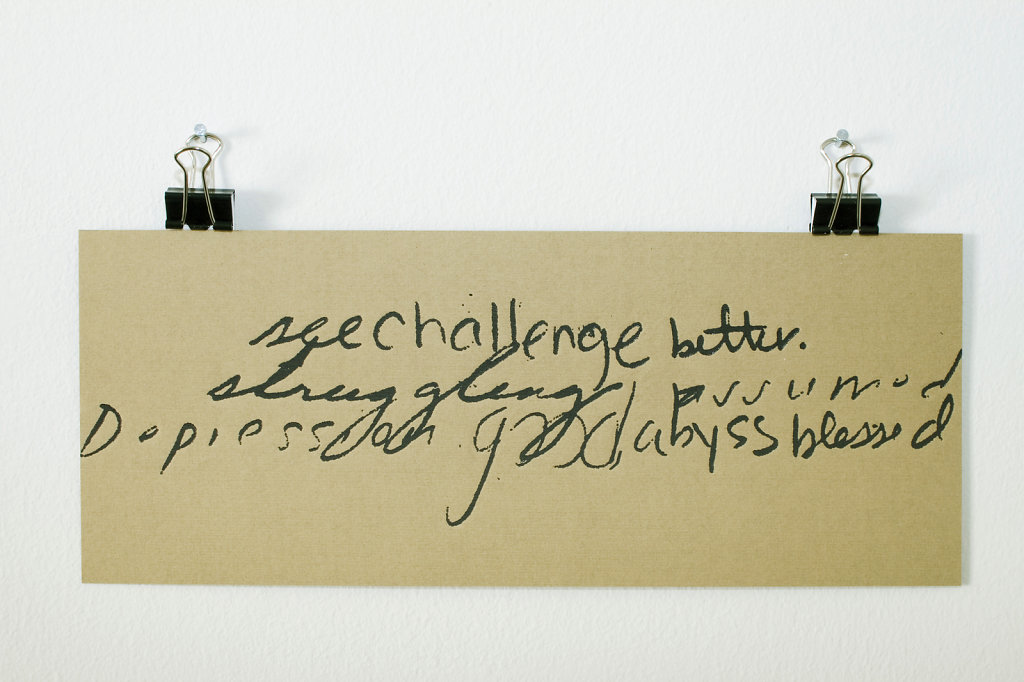 see challenge better.
struggling
Depression good abyss blessed